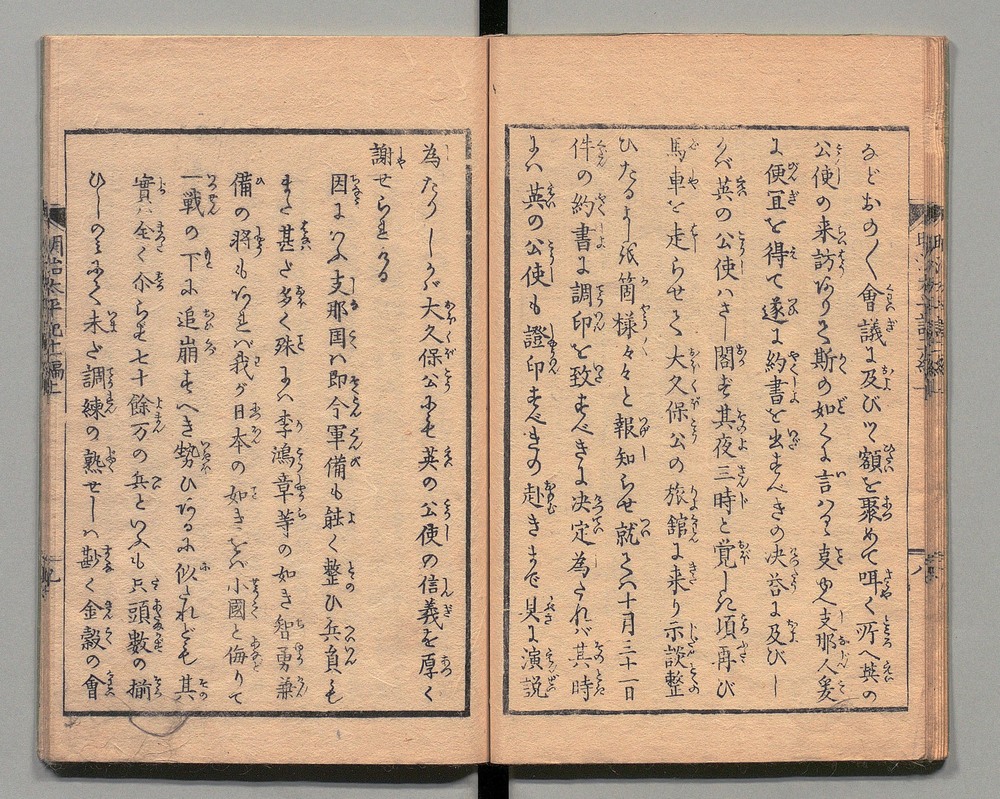 などおの〳〵會議に及びツ額を聚めて咡く所へ英の
公使の来訪ありて斯の如くに言ハるゝ支那人爰
に便宜を得て遂に約書を出すべきの决答に及び し
かバ英の公使ハさし閣き其夜三時と覚しき項再び
馬車を走らせて大久保公の旅館に来り示談整
ひたるよし箇様々々と報知らせ就てハ十月三十一日
件の約書に調印を致すべきに决定為たれバ其時
にハ英の公使も證印すべきの赴きまで具に演説
為たりしかバ大久保公にも英の公使の信義を厚く
謝せられける
因にいふ支那国ハ即今軍備も能く整ひ兵員も
また甚だ多く殊にハ李鴻章等の如き智勇兼
備の将もあれバ我が日本の如きをバ小國と侮りて
一戦の下に追崩すべき勢ひあるに似たれども其
實ハ全く介らず七十餘万の兵といふも兵頭数の揃
ひしのみにて未だ調練の熟せしハ尠く金穀の會
明治太平記七編上
九
八